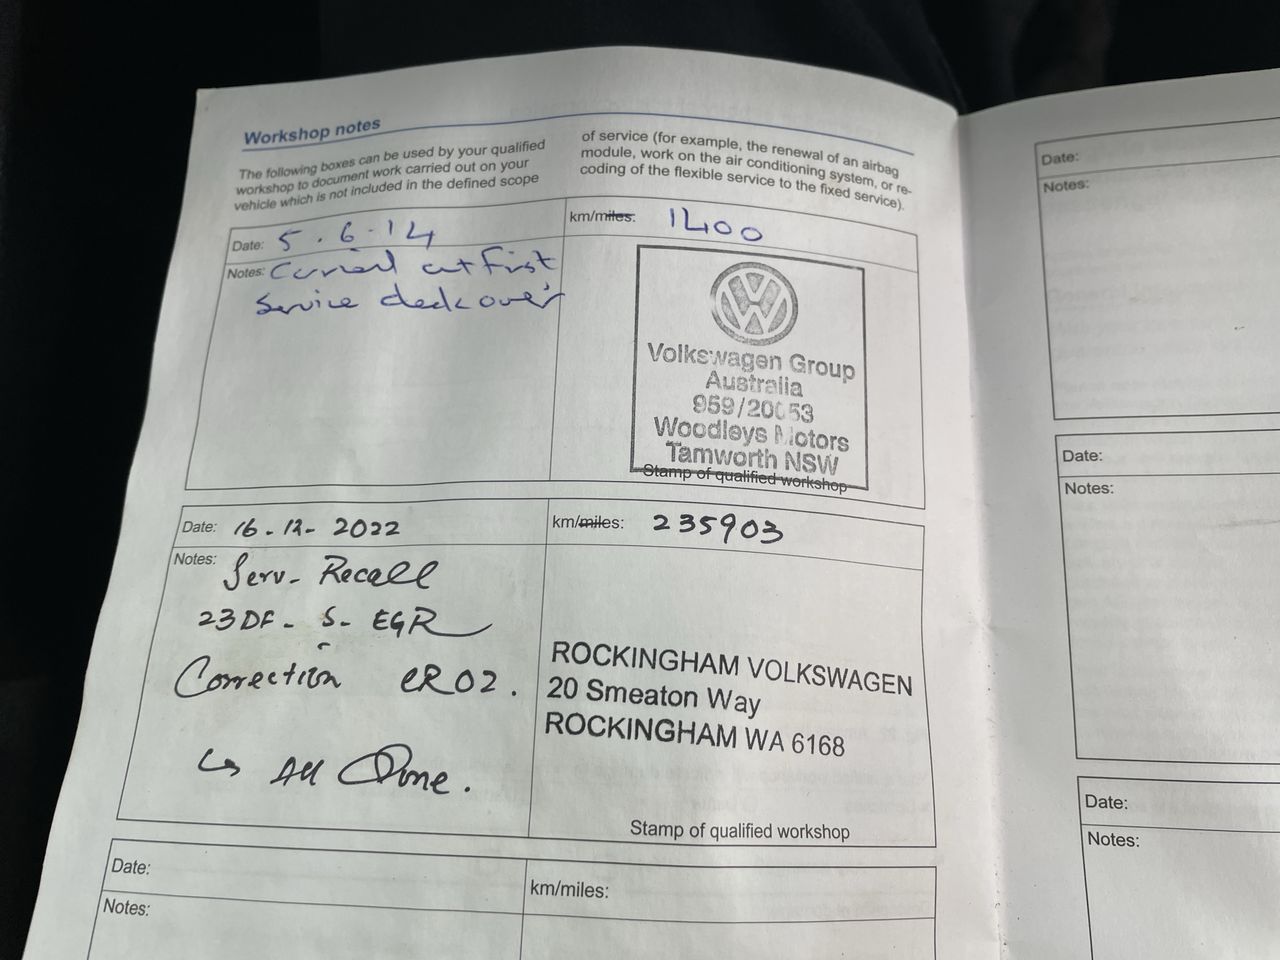 Workshop notes
The following boxes can be used by your qualified
workshop to document work carried out on your
vehicle which is not included in the defined scope
of service (for example, the renewal of an airbag
module, work on the air conditioning system, or re-
coding of the flexible service to the fixed service).
Date: 5.6.14
km/miles: 1400
Notes: Carried out First
Service check over
Volkswagen Group
Australia
Woodleys Motors
Tamworth NSW
Stamp of qualified workshop
Date: 16-12-2022
km/miles: 235903
Notes: Serv- Recall
23DF- S- EGR
Correction CR02.
↳ All Done.
ROCKINGHAM VOLKSWAGEN
20 Smeaton Way
ROCKINGHAM WA 6168
Stamp of qualified workshop
Date:
km/miles:
Notes:
Date:
Notes:
Date:
Notes:
Date:
Notes: